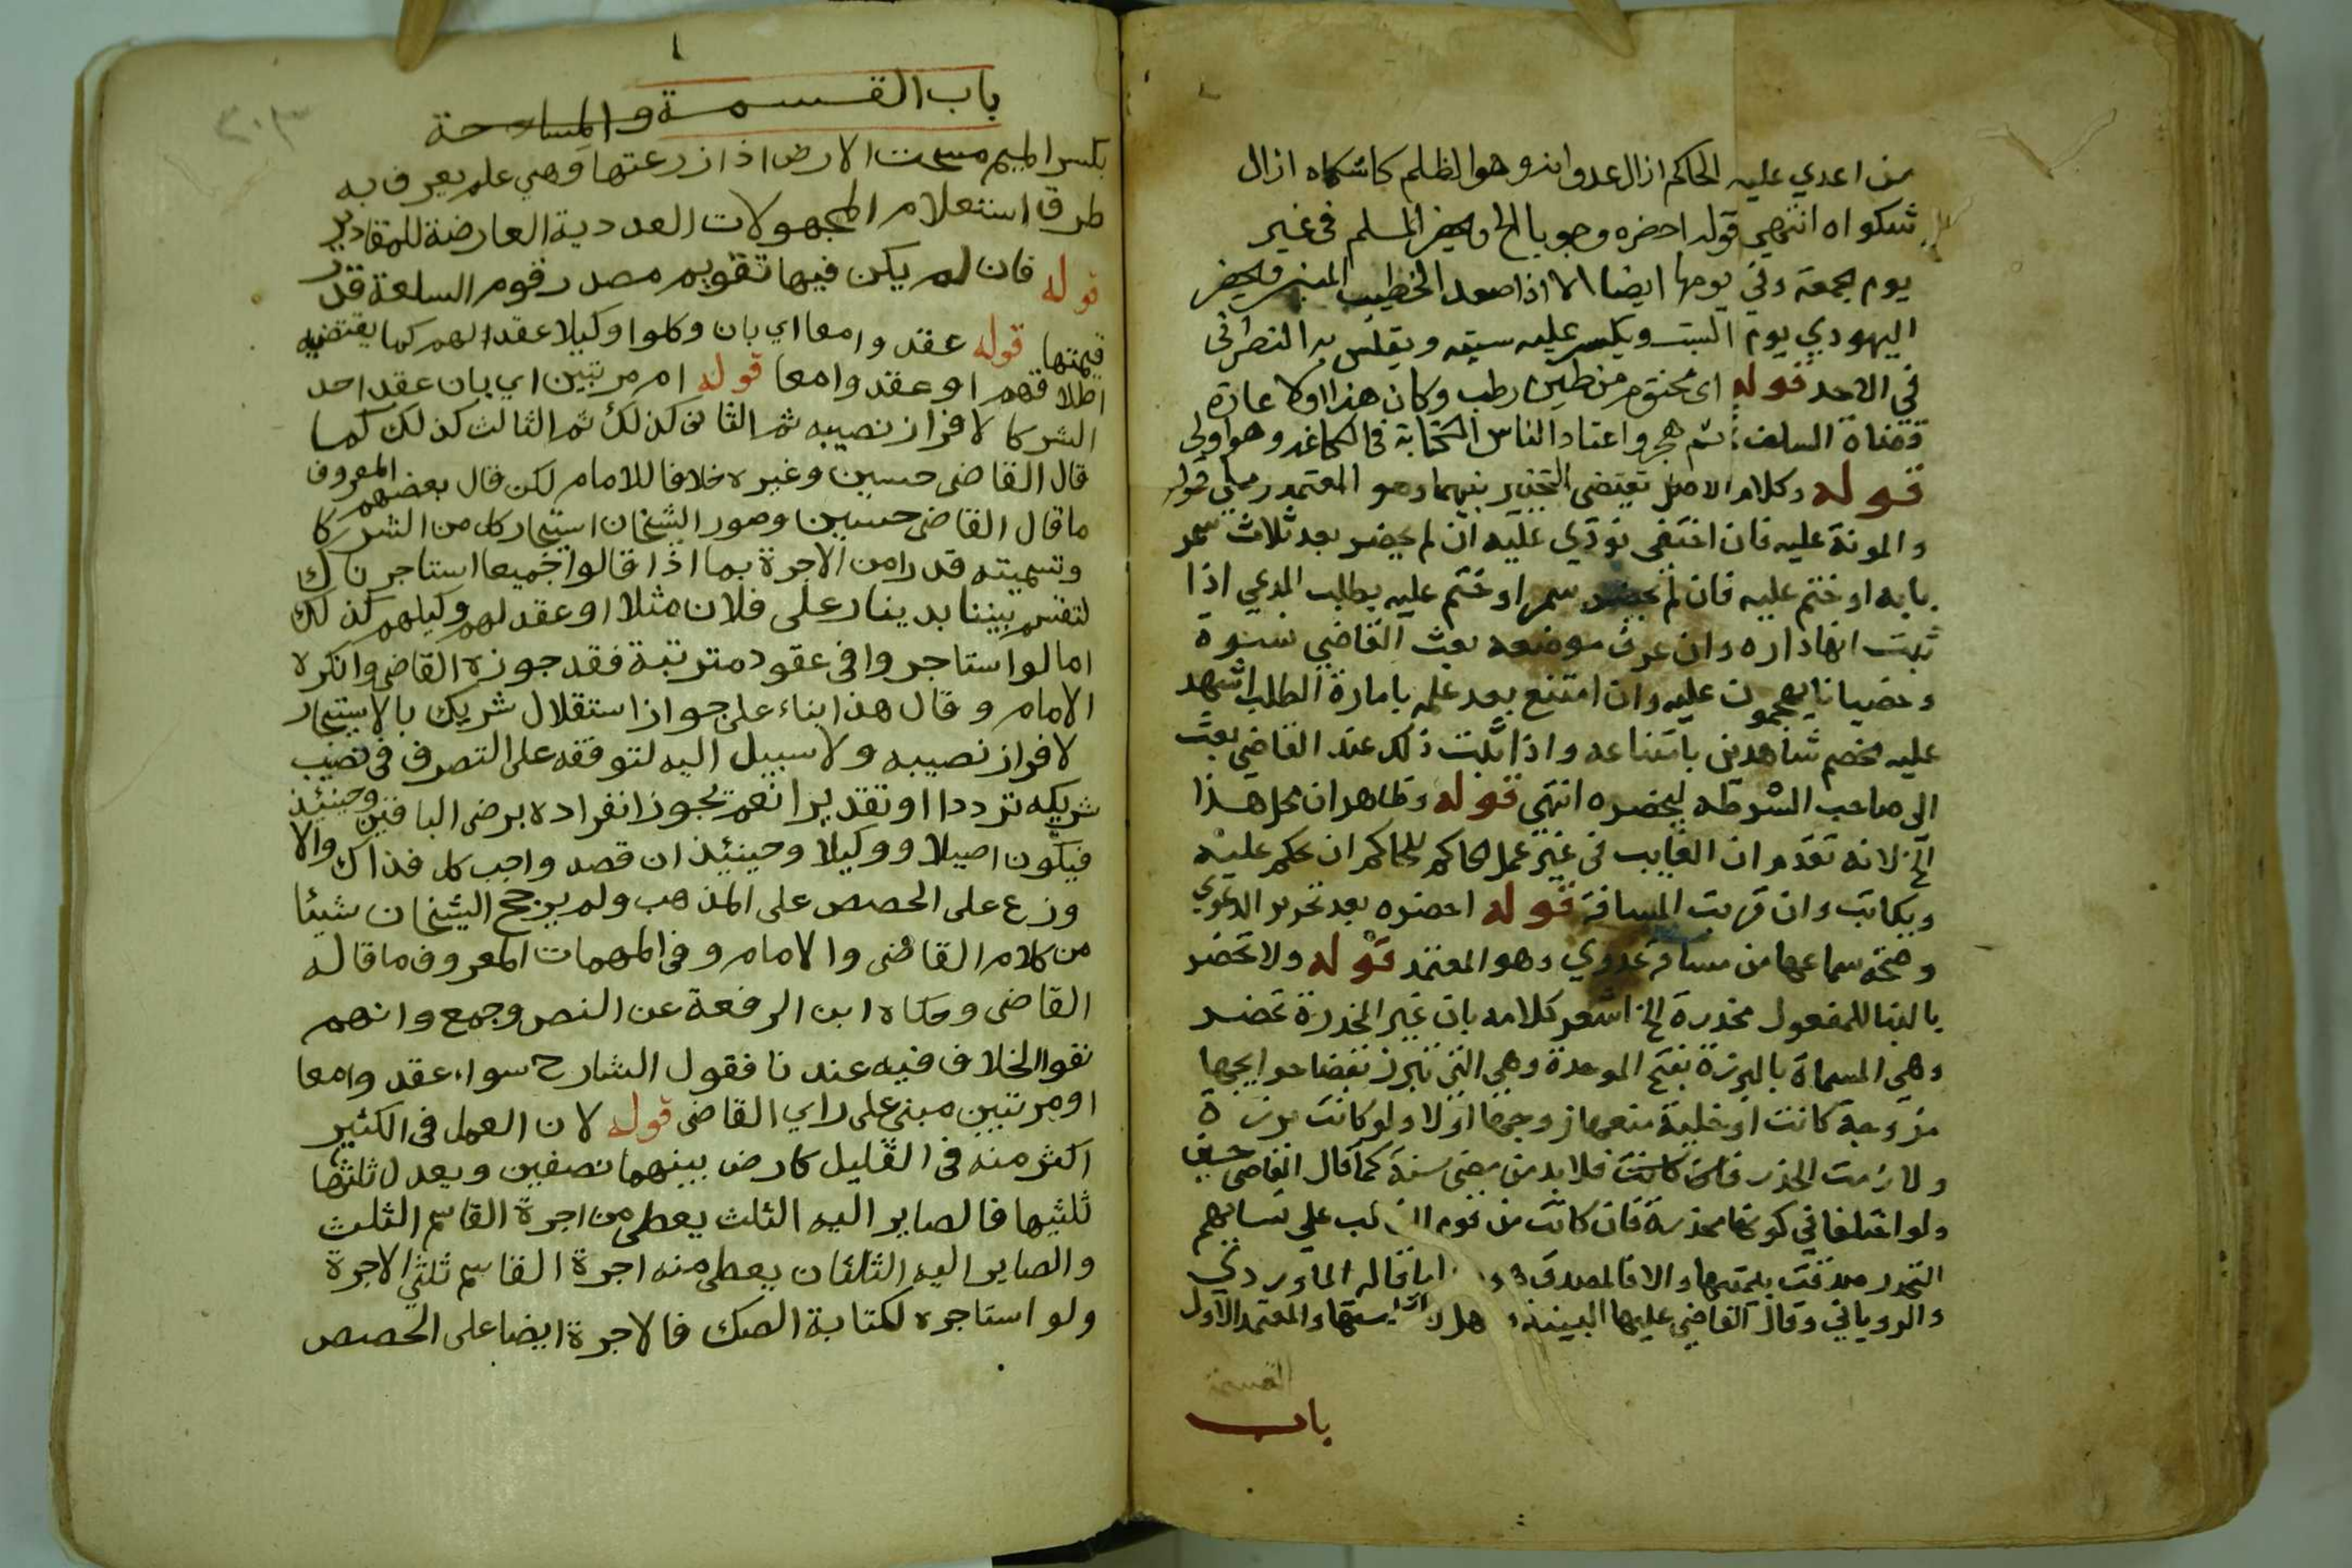 من اعدي عليه الحاكم ازال عدوانه وهو الظلم كاشكاه ازال
شكواه انتهي قوله احضره وجوبا الخ ويحضر المسلم في غير
يوم جمعة وفي يومها ايضا الا اذا صعد الخطيب المنبر ويحضر
اليهودي يوم السبت ويكسر عليه سبته ويقاس به النصراني
في الاحد قوله اي مختوم من طين رطب وكان هذا اولا عادة
قضاة السلف ثم هجر واعتاد الناس الكتابة في الكاغد وهو اولي
قوله وكلام الاصل يقتضي التخيير بينهما وهو المعتمد رملي قوله
والمونة عليه فان اختفى نودي عليه ان لم يحضر بعد ثلاث سمر
بابه او ختم عليه فان لم يحضر سمر او ختم عليه بطلب المدعي اذا
ثبت انها داره وان عرف موضعه بعث القاضي نسوة
وخصيانا يهجمون عليه وان امتنع بعد علمه بامارة الطلب اشهد
عليه خصمه شاهدين بامتناعه واذا ثبت ذلك عند القاضي بعث
الى صاحب الشرطه ليحضره انتهى قوله وظاهر ان محل هذا
الخ لانه تقدم ان الغايب في غير عمل الحاكم للحاكم ان يحكم عليه
ويكاتب وان قربت المسافة قوله احضره بعد تحرير الدعوي
وصحة سماعها من مسافة عدوي وهو المعتمد قوله ولا تحضر
بالبنا للمفعول مخدرة الخ اشعر كلامه بان غير المخدرة تحضر
وهي المسماة بالبرزة بفتح الموحدة وهي التي تبرز لقضا حوايجها
مزوجة كانت او خلية منعها زوجها اولا ولو كانت برزة
ولازمت الخدر فلابد من مضى سنة كما قال القاضي حسين
ولو اختلفا في كونها مخدرة فان كانت من قوم الغالب علي نسايهم
التخدر صدقت بيمينها والا فالمصدق قاله الماوردي
والروياني وقال القاضي عليها البينة والمعتمد الاول
القسمة
باب
٢٠٣
باب القسمة والمساحة
بكسر الميم مسحت الارض اذا زرعتها وهي علم يعرف به
طرق استعلام المجهولات العددية العارضة للمقادير
قوله فان لم يكن فيها تقويم مصدر قوم السلعة قدر
قيمتها قوله عقدوا معا اي بان وكلوا وكيلا عقد لهم كما يقتضيه
اطلاقهم او عقدوا معا قوله ام مرتبين اي بان عقد احد
الشركا لافراز نصيبه ثم الثاني كذلك ثم الثالث كذلك كما
قال القاضي حسين وغيره خلافا للامام لكن قال بعضهم المعروف
ما قال القاضي حسين وصور الشيخان استيجار كل من الشركا
وتسميته قدرا من الاجرة بما اذا قالوا جميعا استاجرناك
لتقسم بيننا بدينار على فلان مثلا او عقد لهم وكيلهم كذلك
اما لو استاجروا في عقود مترتبة فقد جوزه القاضي وانكره
الامام وقال هذا بناء على جواز استقلال شريك بالاستيجار
لافراز نصيبه ولا سبيل اليه لتوقفه على التصرف في نصيب
شريكه ترددا او تقديرا نعم يجوز انفراده برضى الباقين وحينئذ
فيكون اصيلا ووكيلا وحينئذ ان قصد واجب كل فذاك والا
وزع على الحصص على المذهب ولم يرجح الشيخان شيئا
من كلام القاضي والامام وفي المهمات المعروف ما قاله
القاضي وحكاه ابن الرفعة عن النص وجمع وانهم
نفوا الخلاف فيه عندنا فقول الشارح سواء عقدوا معا
او مرتبين مبني على راي القاضي قوله لان العمل في الكثير
اكثر منه في القليل كارض بينهما نصفين ويعدل ثلثها
ثلثيها فالصاير اليه الثلث يعطي من اجرة القاسم الثلث
والصاير اليه الثلثان يعطي منه اجرة القاسم ثلثي الاجرة
ولو استاجره لكتابة الصك فالاجرة ايضا على الحصص